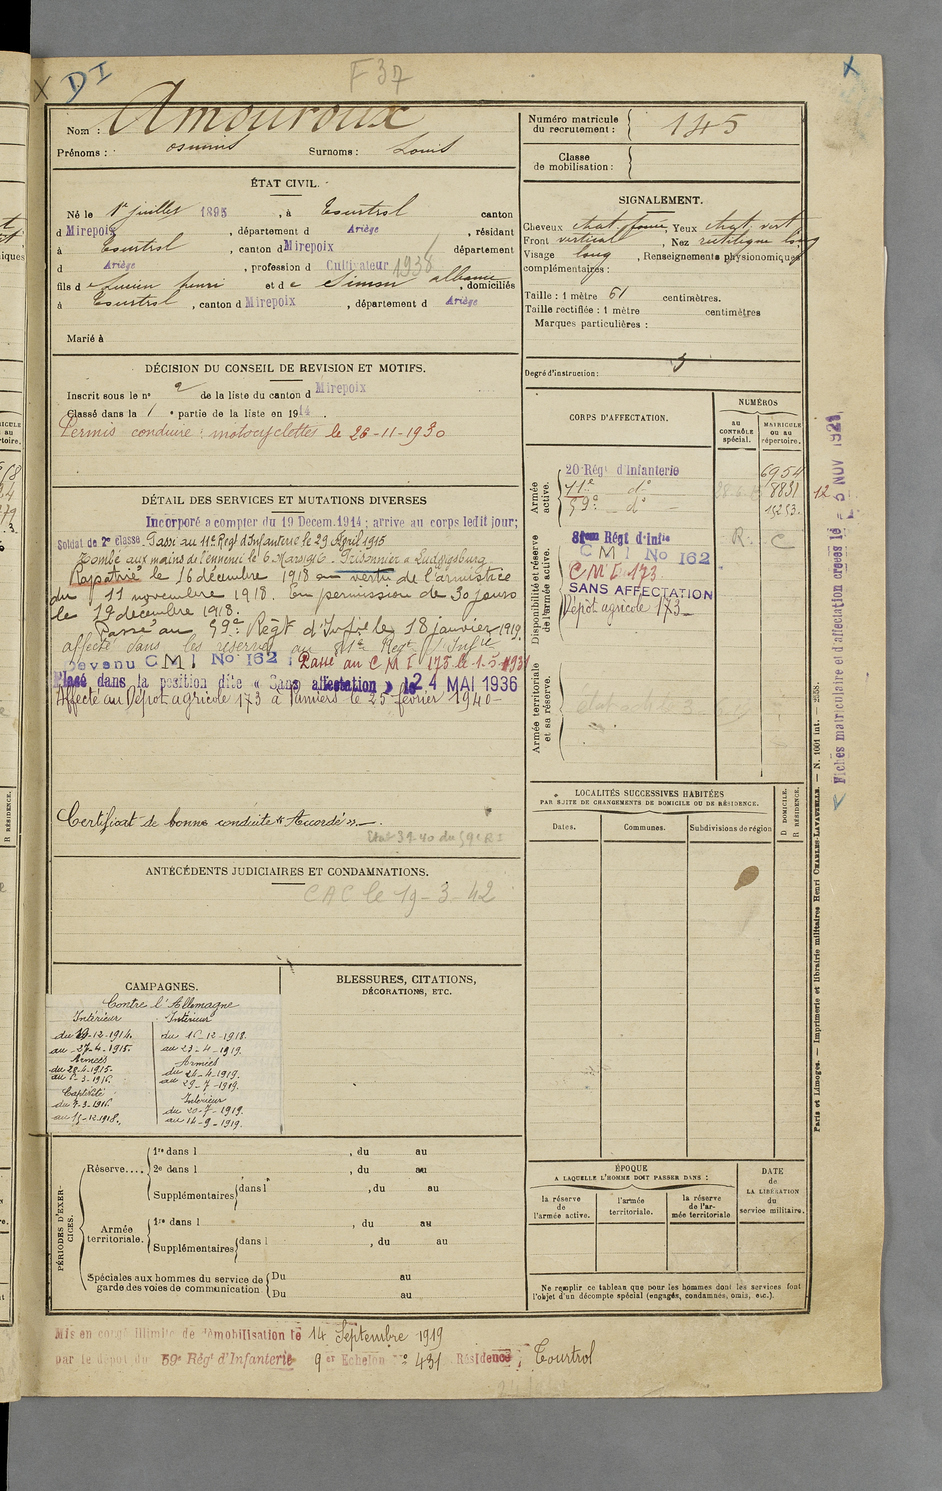 DI
F 37
Nom : Amouroux
Prénoms : Surnoms : Louis
ÉTAT CIVIL.
Né le 1er juillet 1895, à Tourtrol canton
d Mirepoix, département d Ariège, résidant
à Tourtrol, canton d Mirepoix département
d Ariège, profession d Cultivateur 1938
fils de Lucien henri et de Simon albanie, domiciliés
à Tourtrol, canton d Mirepoix, département d Ariège
Marié à
DÉCISION DU CONSEIL DE REVISION ET MOTIFS.
Inscrit sous le no 2 de la liste du canton d Mirepoix
Classé dans la 1 e partie de la liste en 1914.
Permis conduire : motocyclettes le 26-11-1930
DÉTAIL DES SERVICES ET MUTATIONS DIVERSES
Incorporé à compter du 19 Decem. 1914 ; arrivé au corps ledit jour ;
Soldat de 2e classe Passé au 11e Regt d'Infanterie le 29 April 1915
Tombé aux mains de l'ennemi le 6 Mars 1916 - Prisonnier à Ludwigsburg
Rapatrié le 16 décembre 1918 en vertu de l'armistice
du 11 novembre 1918. En permission de 30 jours
le 19 décembre 1918.
Passé au 59e Regt d'Infie le 18 janvier 1919.
affecté dans les réserves au 81e Regt d'Infie
Devenu C M I No 162 ; Passé au C M I 173 le 1-5-1931
Placé dans la position dite « Sans affectation » le 24 MAI 1936
Affecté au Dépôt agricole 173 à Pamiers le 25 février 1940 -
Certificat de bonne conduite « Accordé » -.
Etat 39-40 du 59e R I
ANTÉCÉDENTS JUDICIAIRES ET CONDAMNATIONS.
CAC le 19-3-42
CAMPAGNES.
Contre l'Allemagne
Intérieur
du 19-12-1914.
au 27-4-1915.
Armées
du 28-4-1915.
au 6-3-1916.
Captivité
du 7-3-1916.
au 15-12-1918.
Intérieur
du 16-12-1918.
au 23-4-1919.
Armées
du 24-4-1919.
au 29-7-1919.
Intérieur
du 30-7-1919.
au 14-9-1919.
BLESSURES, CITATIONS,
DÉCORATIONS, ETC.
PÉRIODES D'EXERCICES.
Réserve.... 1re dans l , du au
2e dans l , du au
Supplémentaires dans l , du au
Armée territoriale. 1re dans l , du au
Supplémentaires dans l , du au
Spéciales aux hommes du service de garde des voies de communication Du au
Du au
Numéro matricule du recrutement : 145
Classe de mobilisation :
SIGNALEMENT.
Cheveux chat. foncé, Yeux chat. vert
Front vertical, Nez rectiligne long
Visage long, Renseignements physionomiques
complémentaires :
Taille : 1 mètre 61 centimètres.
Taille rectifiée : 1 mètre centimètres
Marques particulières :
Degré d'instruction : 3
CORPS D'AFFECTATION.
NUMÉROS
AU CONTRÔLE spécial.
MATRICULE ou au répertoire.
Armée active.
20 Régt d'Infanterie 6954
11e do 8831 12
59e do
Disponibilité et réserve de l'armée active.
81eme Régt d'Infie R. C
C M I No 162
C M I 173
SANS AFFECTATION
Dépôt agricole 173
Armée territoriale et sa réserve.
LOCALITÉS SUCCESSIVES HABITÉES
PAR SUITE DE CHANGEMENTS DE DOMICILE OU DE RÉSIDENCE.
Dates.
Communes.
Subdivisions de région
D DOMICILE.
R RÉSIDENCE.
ÉPOQUE
A LAQUELLE L'HOMME DOIT PASSER DANS :
la réserve de l'armée active.
l'armée territoriale.
la réserve de l'armée territoriale
DATE
de
LA LIBÉRATION
du
service militaire.
Ne remplir ce tableau que pour les hommes dont les services font
l'objet d'un décompte spécial (engagés, condamnés, omis, etc.).
Fiches matriculaire et d'affectation créées le 5 NOV 1921
Paris et Limoges. — Imprimerie et librairie militaires Henri CHARLES-LAVAUZELLE. — N. 1001 int. — 2558.
Mis en congé illimité de démobilisation le 14 Septembre 1919
par le dépôt du 59e Régt d'Infanterie 9er Echelon no 431 Résidence ; Tourtrol